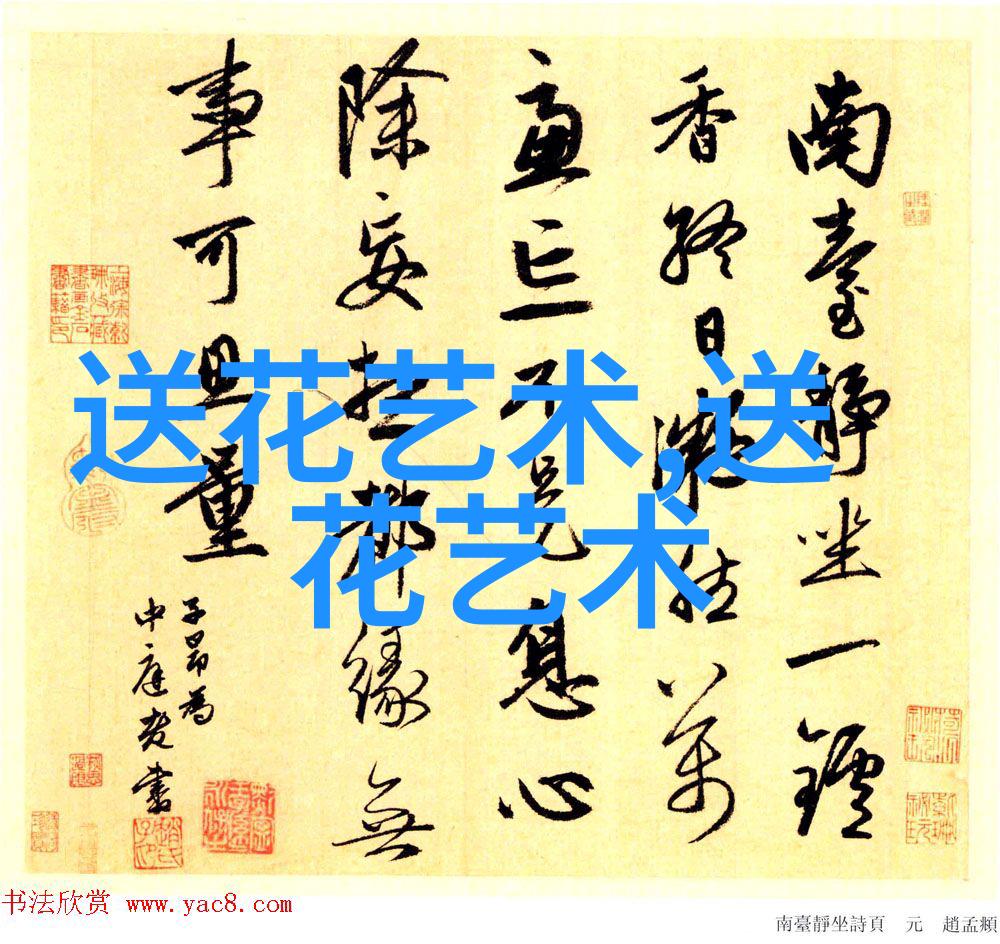 南臺靜坐一鑪
香終日凝然萬
慮亡不是息心
除妄想都緣無
事可思量
子昂為
中庭老書
送花艺术,送
花艺术
书法欣赏 www.yac8.com
南臺靜坐詩頁 元 趙孟頫